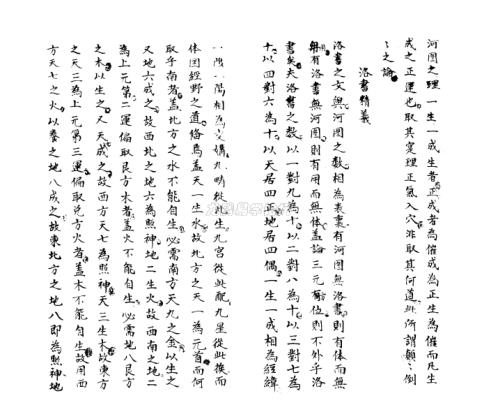 河图之理一生一成生者正成者为催成为正生为催而凡生
成之正运也取其寔理正气入穴非取其何道此所谓颠之倒
之之论
洛書精義
洛書之文與河图之数相為表裏有河图無洛書則有体而無
用有洛書無河图則有用而無体盖論三元
位則不外乎洛
書矣夫洛書之数以一對九為十以二對八為十以三對七為
十以四對六為十以天居四正地居四偶一生一成相為經緯
一陰一陽相為交媾九
從此生九宫從此配九星從此換而
体国經野之道
焉盖天一生水故北方之天一為元首而何
取乎南者盖北方之水不能自生必需南方天九之金以生之
又地六成之故西北之地六為照神地二生火故西南之地二
為上元第二運偏取艮方木者盖火不能自生必需地八艮方
之木以生之又天成之故西方天七為照神天三生木故東方
之天三為上元第三運偏取兑方火者盖木不能自生故用西
方天七之火以養之地八成之故東北方之地八即為照神地